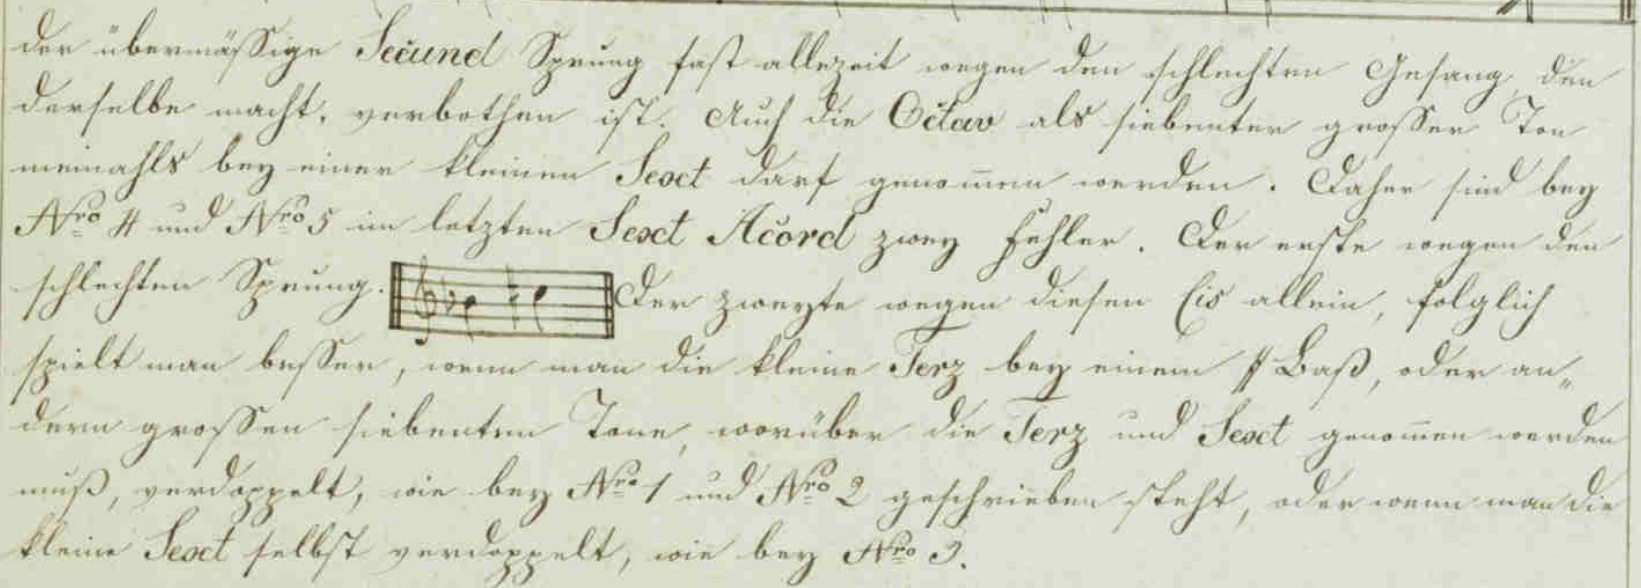 der übermässige Secund Sprung fast allezeit wegen den schlechten Gesang, den
derselbe macht, verbothen ist. Auch die Octav als siebenter grosser Ton
niemahls bey einer kleinen Sext darf genom̅en werden. Daher sind bey
Nro 4 und Nro 5 im letzten Sext Acord zwey Fehler. Der erste wegen den
schlechten Sprung. Der zweyte wegen diesen Cis allein, folglich
spielt man besser, wenn man die kleine Terz bey einem # Baß, oder an„
dern grossen siebenten Tone, worüber die Terz und Sext genom̅en werden
muß, verdoppelt, wie bey Nro 1 und Nro 2 geschrieben steht, oder wenn man die
kleine Sext selbst verdoppelt, wie bey Nro 3.